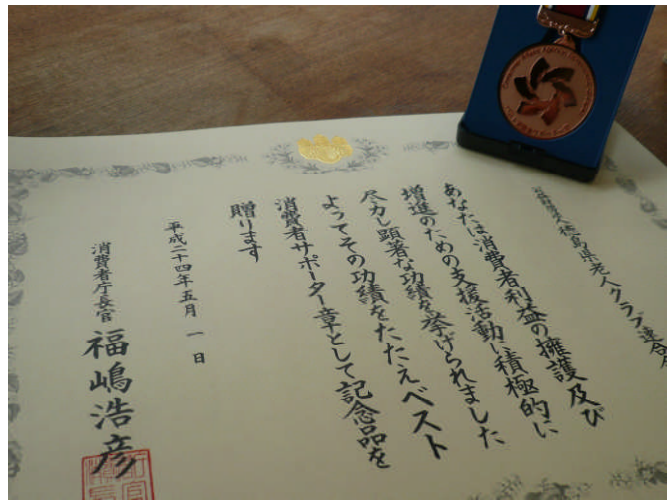 公益財団法人徳島県老人クラブ連合会
あなたは消費者利益の擁護及び
増進のための支援活動に積極的に
尽力し顕著な功績を挙げられました
よってその功績をたたえベスト
消費者サポーター章として記念品を
贈ります
平成二十四年五月一日
消費者庁長官
福嶋浩彦